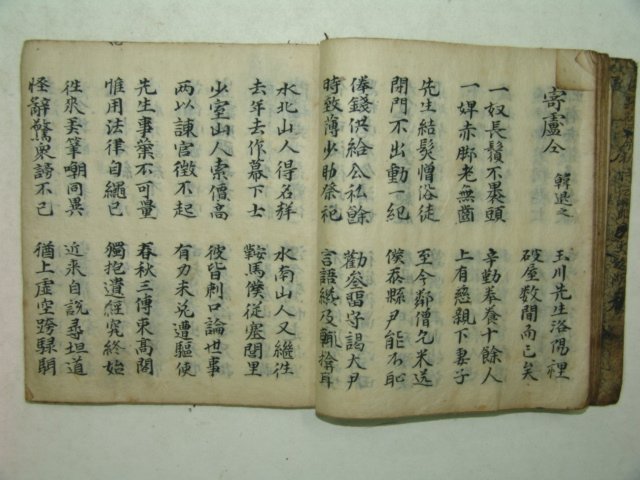 寄盧仝 韓退之
玉川先生洛陽裡
破屋數間而已矣
一奴長鬚不裹頭
一婢赤脚老無齒
辛勤奉養十餘人
上有慈親下妻子
先生結髮憎俗徒
閉門不出動一紀
至今鄰僧乞米送
僕忝縣尹能不恥
俸錢供給公私餘
時致薄少助祭祀
勸參留守謁大尹
言語纔及輒掩耳
水北山人得名聲
去年去作幕下士
水南山人又繼徃
鞍馬僕從塞閭里
少室山人索價高
兩以諫官徵不起
彼皆刺口論世事
有力未免遭驅使
先生事業不可量
惟用法律自繩已
春秋三傳束高閣
獨抱遺經究終始
徃來弄筆嘲同異
怪辭驚衆謗不已
近來自說尋坦道
猶上虛空跨騄駬